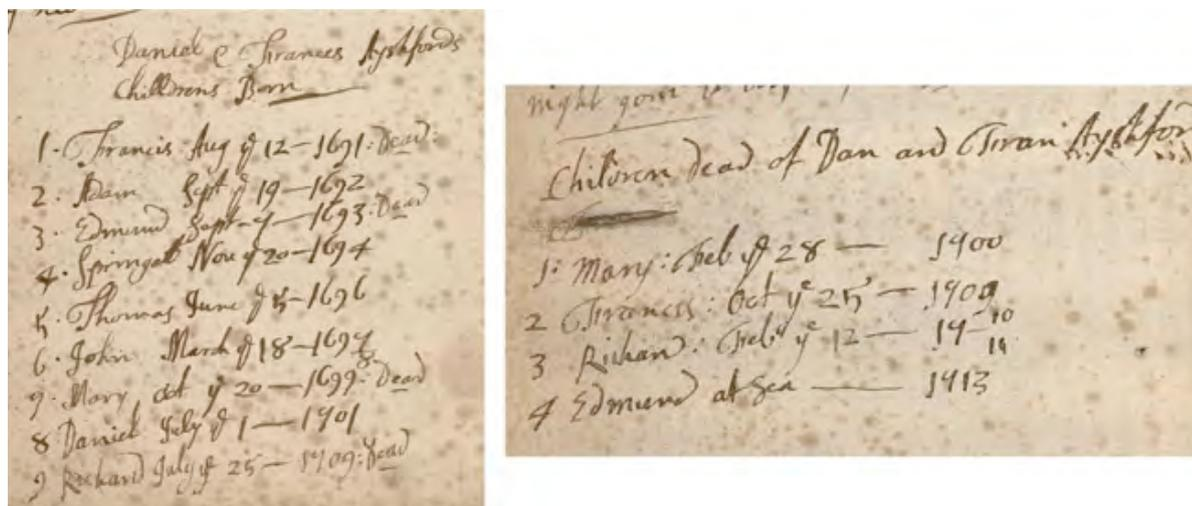 Daniel & Frances Ayshfords
Childrens Born
1. Francis Aug ye 12 — 1691: Dead:
2. Adam Sept ye 19 — 1692
3. Edmund Sept - 7 — 1693: Dead
4. Springet Nov ye 20 — 1694
5. Thomas June ye 5 — 1696
6. John March ye 18 — 1697
8
7. Mary oct ye 20 — 1699: Dead
8 Daniel July ye 1 — 1701
9 Richard July ye 25 — 1709: Dead
might
Children dead of Dan and Fran: Ayshford
1: Mary: Feb ye 28 — 1700
2 Francis: Oct ye 25 — 1709
3 Richard: Feb ye 12 — 17-10
11
4 Edmund at Sea — 1713